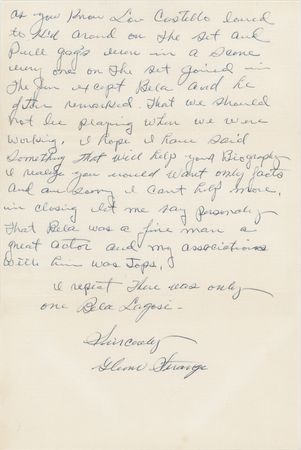 as you know Lou Costello loved
to kid around on the set and
Pull gags even in a scene
every one on the set joined in
The fun except Bela and he
often remarked That we should
not be playing when we were
working. I hope I have said
Something That will help your Biography
I realize you would want only facts
and am sorry I can't help more,
in closing let me say personaly
That Bela was a fine man a
great actor and my associations
with him was Tops,
I repeat There was only
one Bela Lugosi -
Sincerely
Glenn Strange